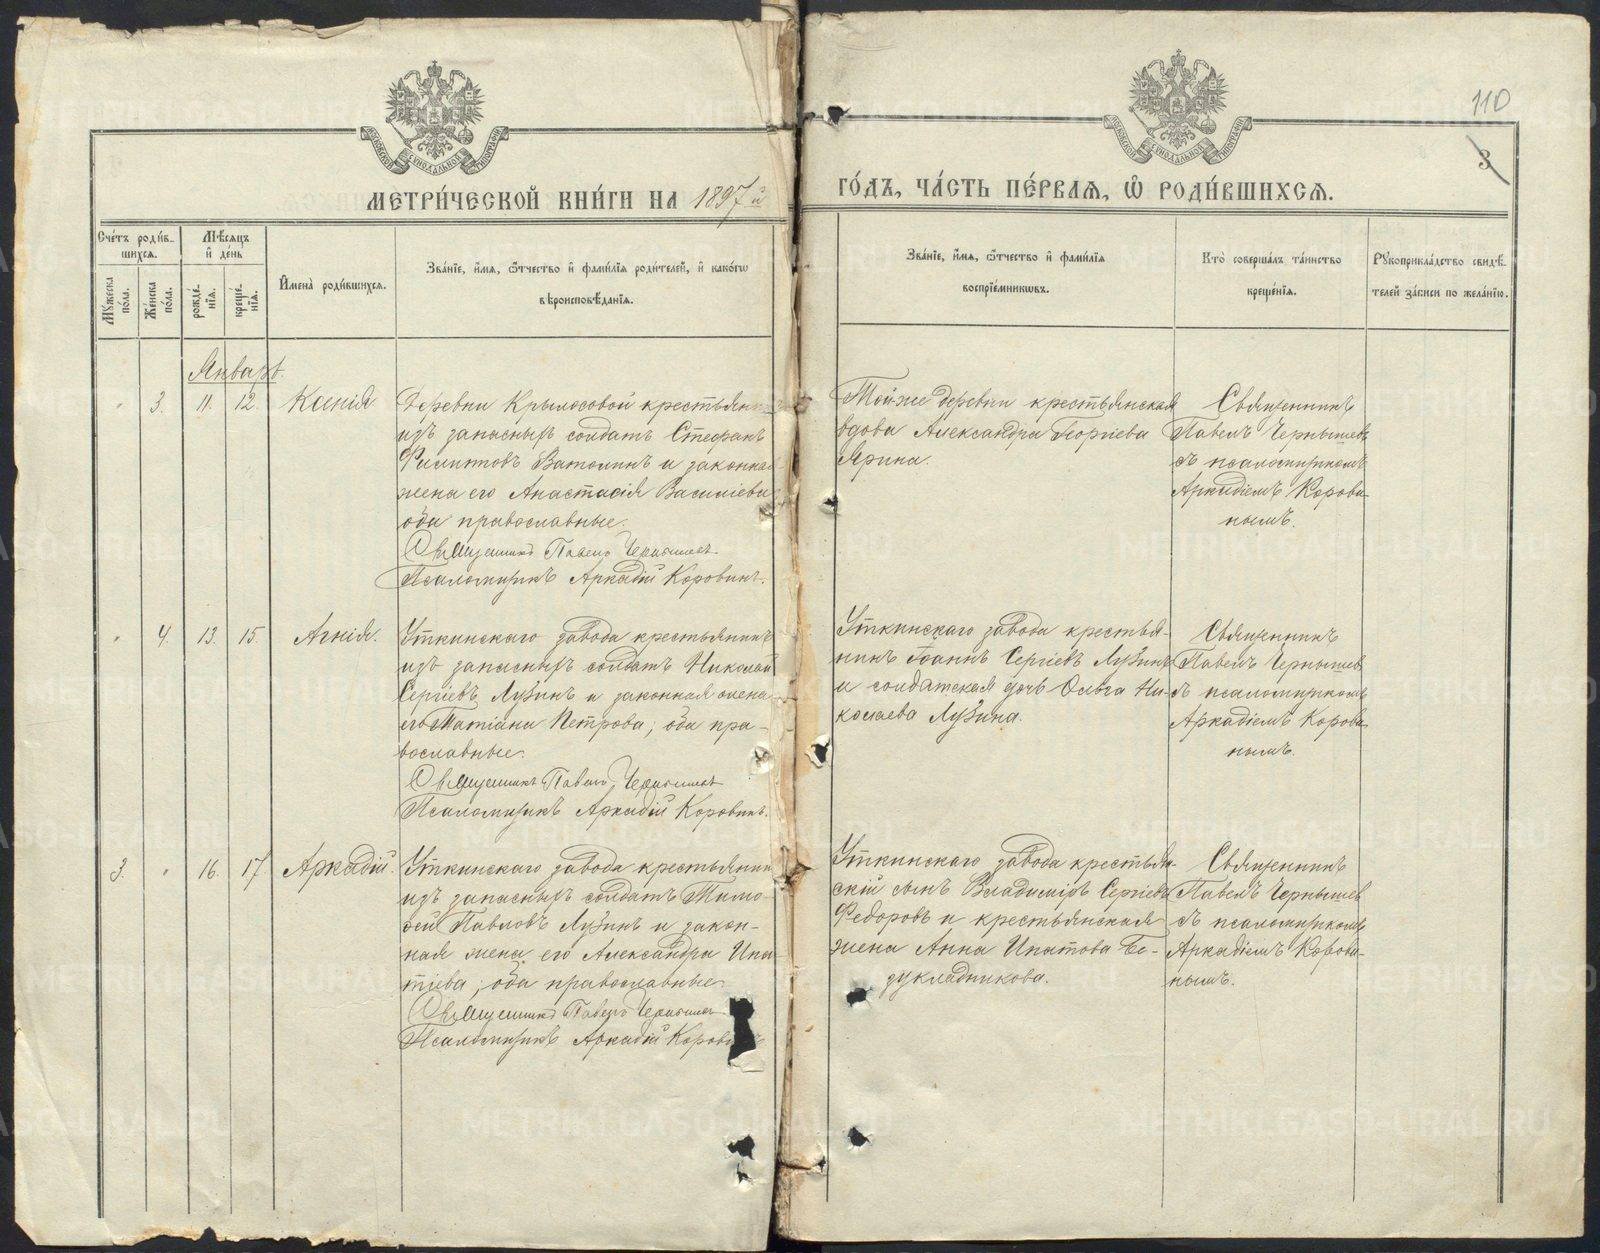 110
3
МЕТРИ́ЧЕСКОЙ КНИ́ГИ НА 1897й
ГО́ДЪ, ЧА́СТЬ ПЕ́РВАѦ, Ѿ РОДИ́ВШИХСѦ.
Сче́тъ роди́в-
шихсѧ.
Мꙋ́жеска по́ла.
Же́нска по́ла.
Мѣ́сѧцъ
и҆ де́нь
рожде́-
нїѧ.
креще́-
нїѧ.
И҆мена̀ роди́вшихсѧ.
Зва́нїе, и҆́мѧ, ѻ҆́тчество и҆ фами́лїѧ роди́телей, и҆ како́гѡ
вѣроисповѣ́данїѧ.
Зва́нїе, и҆́мѧ, ѻ҆́тчество и҆ фами́лїѧ
воспрїе́мникѡвъ.
Кто̀ соверша́лъ та́инство
креще́нїѧ.
Рꙋкоприкла́дство свидѣ́-
телей за́писи по жела́нїю.
Январь.
" 3. 11. 12. Ксенія
Деревни Крылосовой крестьянинъ
изъ запасныхъ солдатъ Стефанъ
Филипповъ Ватолинъ и законная
жена его Анастасія Василіева
оба православные.
Священникъ Павелъ Чернышевъ
Псаломщикъ Аркадій Коровинъ.
Тойже деревни крестьянская
вдова Александра Георгіева
Ярина.
Священникъ
Павелъ Чернышев
съ псаломщикомъ
Аркадіемъ Корови-
нымъ.
" 4. 13. 15. Агнія.
Уткинскаго завода крестьянинъ
изъ запасныхъ солдатъ Николай
Сергіевъ Лузинъ и законная жена
его Татіана Петрова, оба пра-
вославные.
Священникъ Павелъ Чернышевъ
Псаломщикъ Аркадій Коровинъ.
Уткинскаго завода крестья-
нинъ Іоаннъ Сергіевъ Лузинъ
и солдатская дочь Ольга Ни-
колаева Лузина.
Священникъ
Павелъ Чернышев
съ псаломщикомъ
Аркадіемъ Корови-
нымъ.
3. " 16. 17. Аркадій.
Уткинскаго завода крестьянин
изъ запасныхъ солдатъ Тимо-
ѳей Павловъ Лузинъ и закон-
ная жена его Александра Ипа-
тіева, оба православные.
Священникъ Павелъ Чернышев
Псаломщикъ Аркадій Корови
Уткинскаго завода крестьян-
скій сынъ Владиміръ Сергіевъ
Федоровъ и крестьянская
жена Анна Ипатова Бе-
дукладникова.
Священникъ
Павелъ Чернышев
съ псаломщикомъ
Аркадіемъ Корови-
нымъ.
METRIKI.GASO-URAL.RU